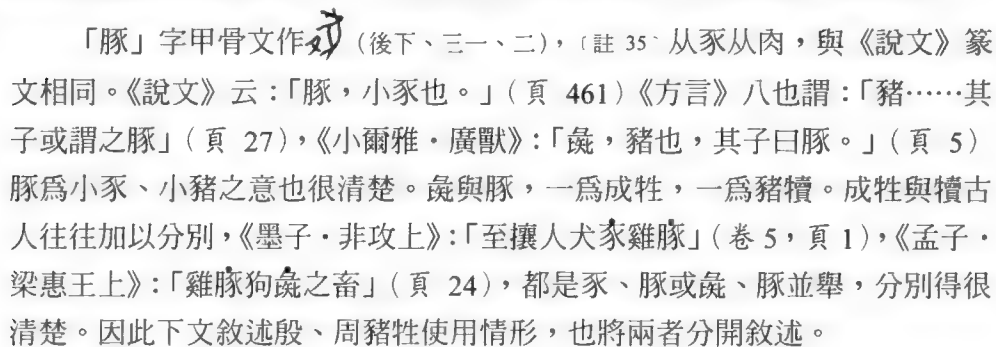 「豚」字甲骨文作（後下、三一、二），〔註 35〕从豕从肉，與《說文》篆
文相同。《說文》云：「豚，小豕也。」（頁 461）《方言》八也謂：「豬……其
子或謂之豚」（頁 27），《小爾雅・廣獸》：「彘，豬也，其子曰豚。」（頁 5）
豚爲小豕、小豬之意也很清楚。彘與豚，一爲成牲，一爲豬犢。成牲與犢古
人往往加以分別，《墨子・非攻上》：「至攘人犬豕雞豚」（卷 5，頁 1），《孟子・
梁惠王上》：「雞豚狗彘之畜」（頁 24），都是豕、豚或彘、豚並舉，分別得很
清楚。因此下文敘述殷、周豬牲使用情形，也將兩者分開敘述。